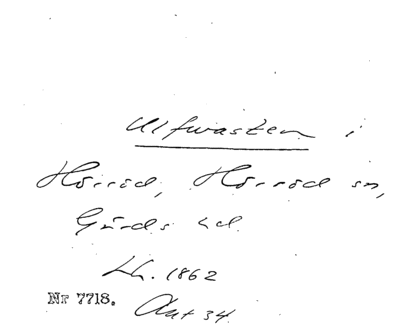 Ulfwasten i
Hörröd, Hörröd sn,
Gärds hd.
Lh. 1862
Nr 7718. Akt 34